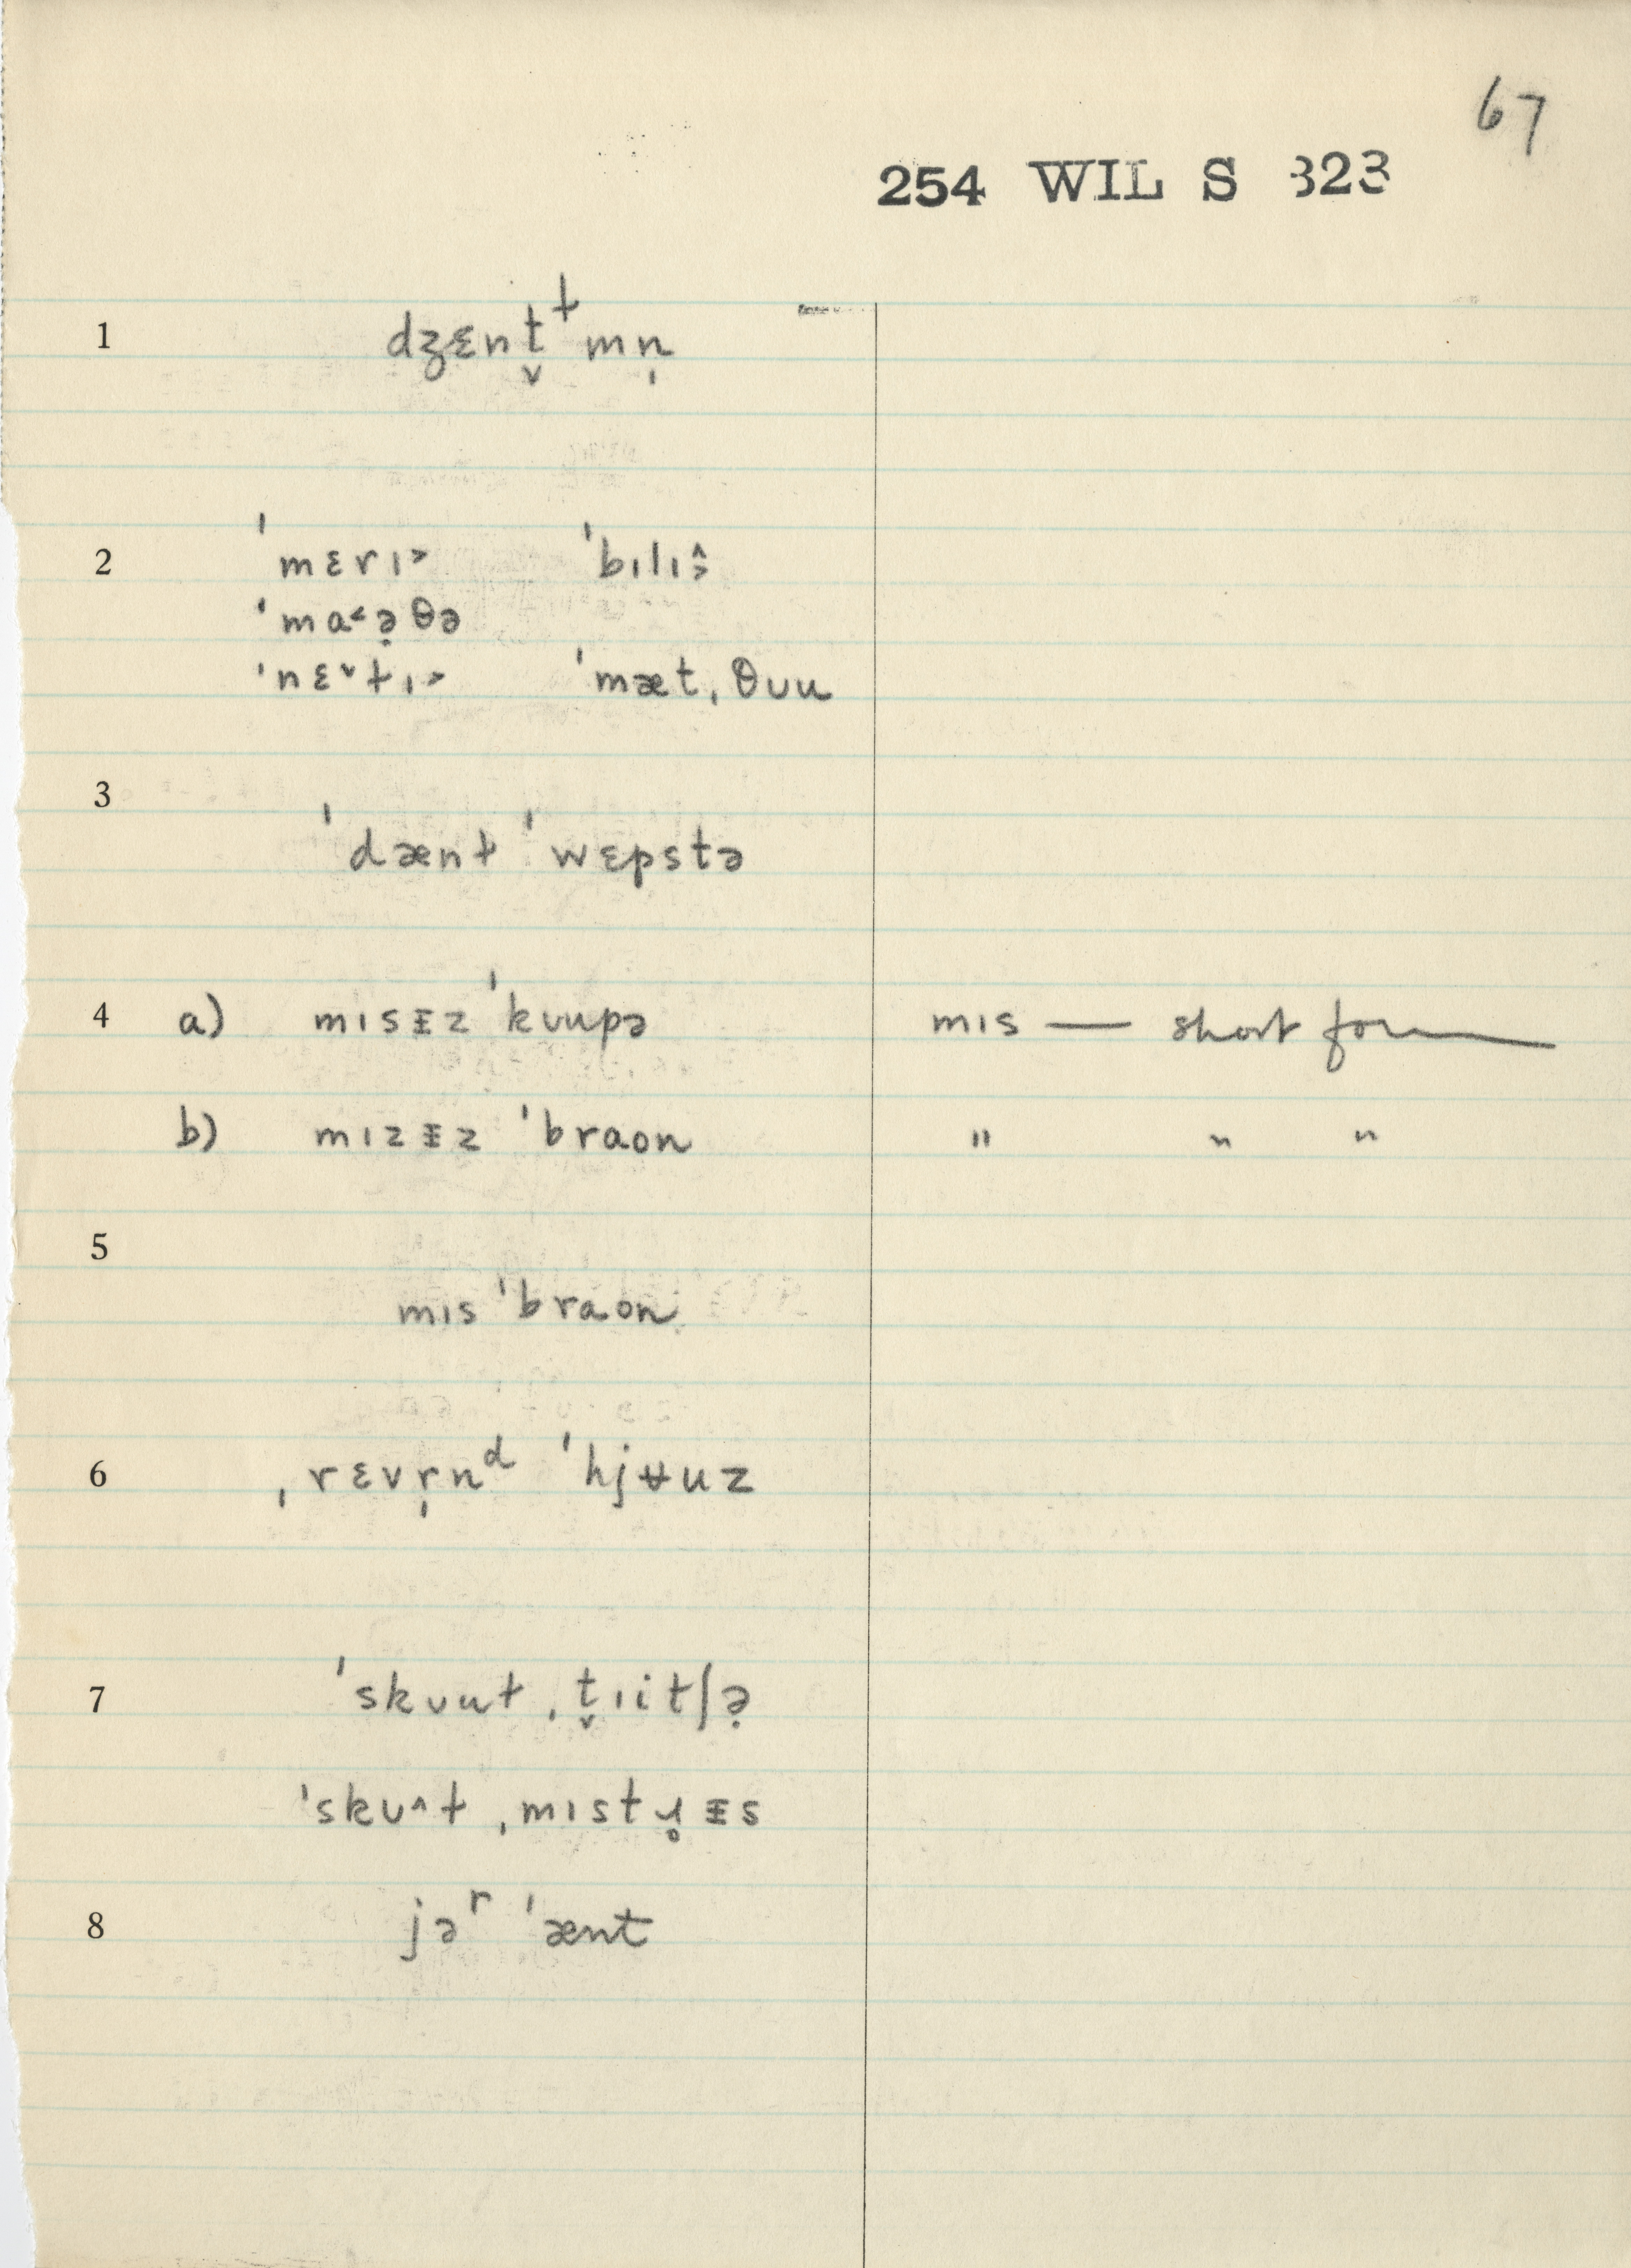 67
254 WIL S 323
1 dʒɛnt̬ɫmn̩
2 ˈmɛrɪ˃ ˈbɪlɪ˄˃
ˈmɑ˂ə̣θə
ˈnɛ˅ɫɪ˃ ˈmætˌθʊu
3 ˈdænɫ ˈwɛpstə
4 a) mɪsᵻz ˈkʊupə mɪs — short form
b) mɪzᵻz ˈbraʊn " " "
5 mɪs ˈbraʊn
6 ˌrɛvr̩nᵈ ˈhjʉuz
7 ˈskʊuɫ ˌt̬ɪitʃə̣
ˈskʊ˄ɫ ˌmɪstɹ̥ᵻs
8 jəʳ ˈænt